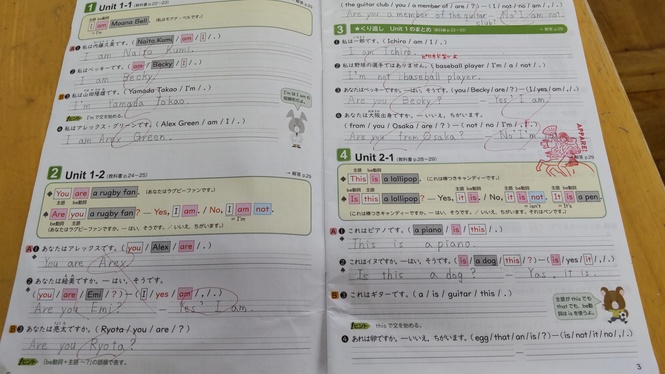 1 Unit 1-1 (教科書 p.22~23)
主語 be動詞
I am Moana Bell. (私はモアナ・ベルです。)
= I'm
A ❶ 私は内藤久美です。(Naito Kumi / am / I / .)
I am Naito Kumi.
❷ 私はベッキーです。(am / Becky / I / .)
I am Becky.
B ❸ 私は山田隆雄です。(Yamada Takao / I'm / .)
I'm Yamada Takao.
ヒント I'mで文を始める。
❹ 私はアレックス・グリーンです。(Alex Green / am / I / .)
I am Arex Green.
I'm は I am の
短縮形だよ。
2 Unit 1-2 (教科書 p.24~25)
→ 解答 p.29
主語 be動詞
You are a rugby fan. (あなたはラグビーファンです。)
be動詞 主語
Are you a rugby fan? — Yes, I am. / No, I am not.
= I'm
(あなたはラグビーファンですか。—はい、そうです。/いいえ、ちがいます。)
A ❶ あなたはアレックスです。(you / Alex / are / .)
You are Arex.
❷ あなたは絵美ですか。—はい、そうです。
(you / are / Emi / ?)—(I / yes / am / , / .)
Are you Emi? — Yes, I am.
B ❸ あなたは亮太ですか。(Ryota / you / are / ?)
Are you Ryota?
ヒント 「be動詞+主語 ~?」の語順で表す。
(the guitar club / you / a member of / are / ?)—(I / not / am / no / , / .)
Are you a member of the guitar club? — No, I am not.
3 ★くり返し Unit 1のまとめ
→ 解答 p.29
❶ 私は一郎です。(Ichiro / am / I / .)
I am Ichiro.
❷ 私は野球の選手ではありません。(baseball player / I'm / a / not / .)
I'm not baseball player.
❸ あなたはベッキーですか。—はい、そうです。(you / Becky / are / ?)—(I / yes / am / , / .)
Are you Becky? — Yes, I am.
❹ あなたは大阪出身ですか。—いいえ、ちがいます。
(from / you / Osaka / are / ?)—(not / no / I'm / , / .)
Are you from Osaka? — No, I'm
4 Unit 2-1 (教科書 p.28~29)
主語 be動詞
This is a lollipop. (これは棒つきキャンディーです。)
be動詞 主語
Is this a lollipop? — Yes, it is. / No, it is not. It is a pen.
= isn't
= It's
(これは棒つきキャンディーですか。—はい、そうです。/いいえ、ちがいます。それはペンです。)
A ❶ これはピアノです。(a piano / is / this / .)
This is a piano.
❷ これはイヌですか。—はい、そうです。(is / a dog / this / ?)—(is / yes / it / , / .)
Is this a dog? — Yes, it is.
B ❸ これはギターです。(a / is / guitar / this / .)
ヒント thisで文を始める。
❹ あれは卵ですか。—いいえ、ちがいます。(egg / that / an / is / ?)—(is / not / it / no / , / .)
主語が this でも
that でも、be動
詞は is を使うよ。
3